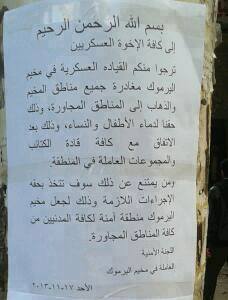 بسم الله الرحمن الرحيم
إلى كافة الإخوة العسكريين
ترجوا منكم القياده العسكرية في مخيم
اليرموك مغادرة جميع مناطق المخيم
والذهاب إلى المناطق المجاورة، وذلك
حقنا لدماء الأطفال والنساء، وذلك بعد
الاتفاق مع كافة قادة الكتائب
والمجموعات العاملة في المنطقة.
ومن يمتنع عن ذلك سوف تتخذ بحقه
الإجراءات اللازمة وذلك لجعل مخيم
اليرموك منطقة آمنة لكافة المدنيين من
كافة المناطق المجاورة.
اللجنة الأمنية
العاملة في مخيم اليرموك
الأحد ١٧-١١-٢٠١٣